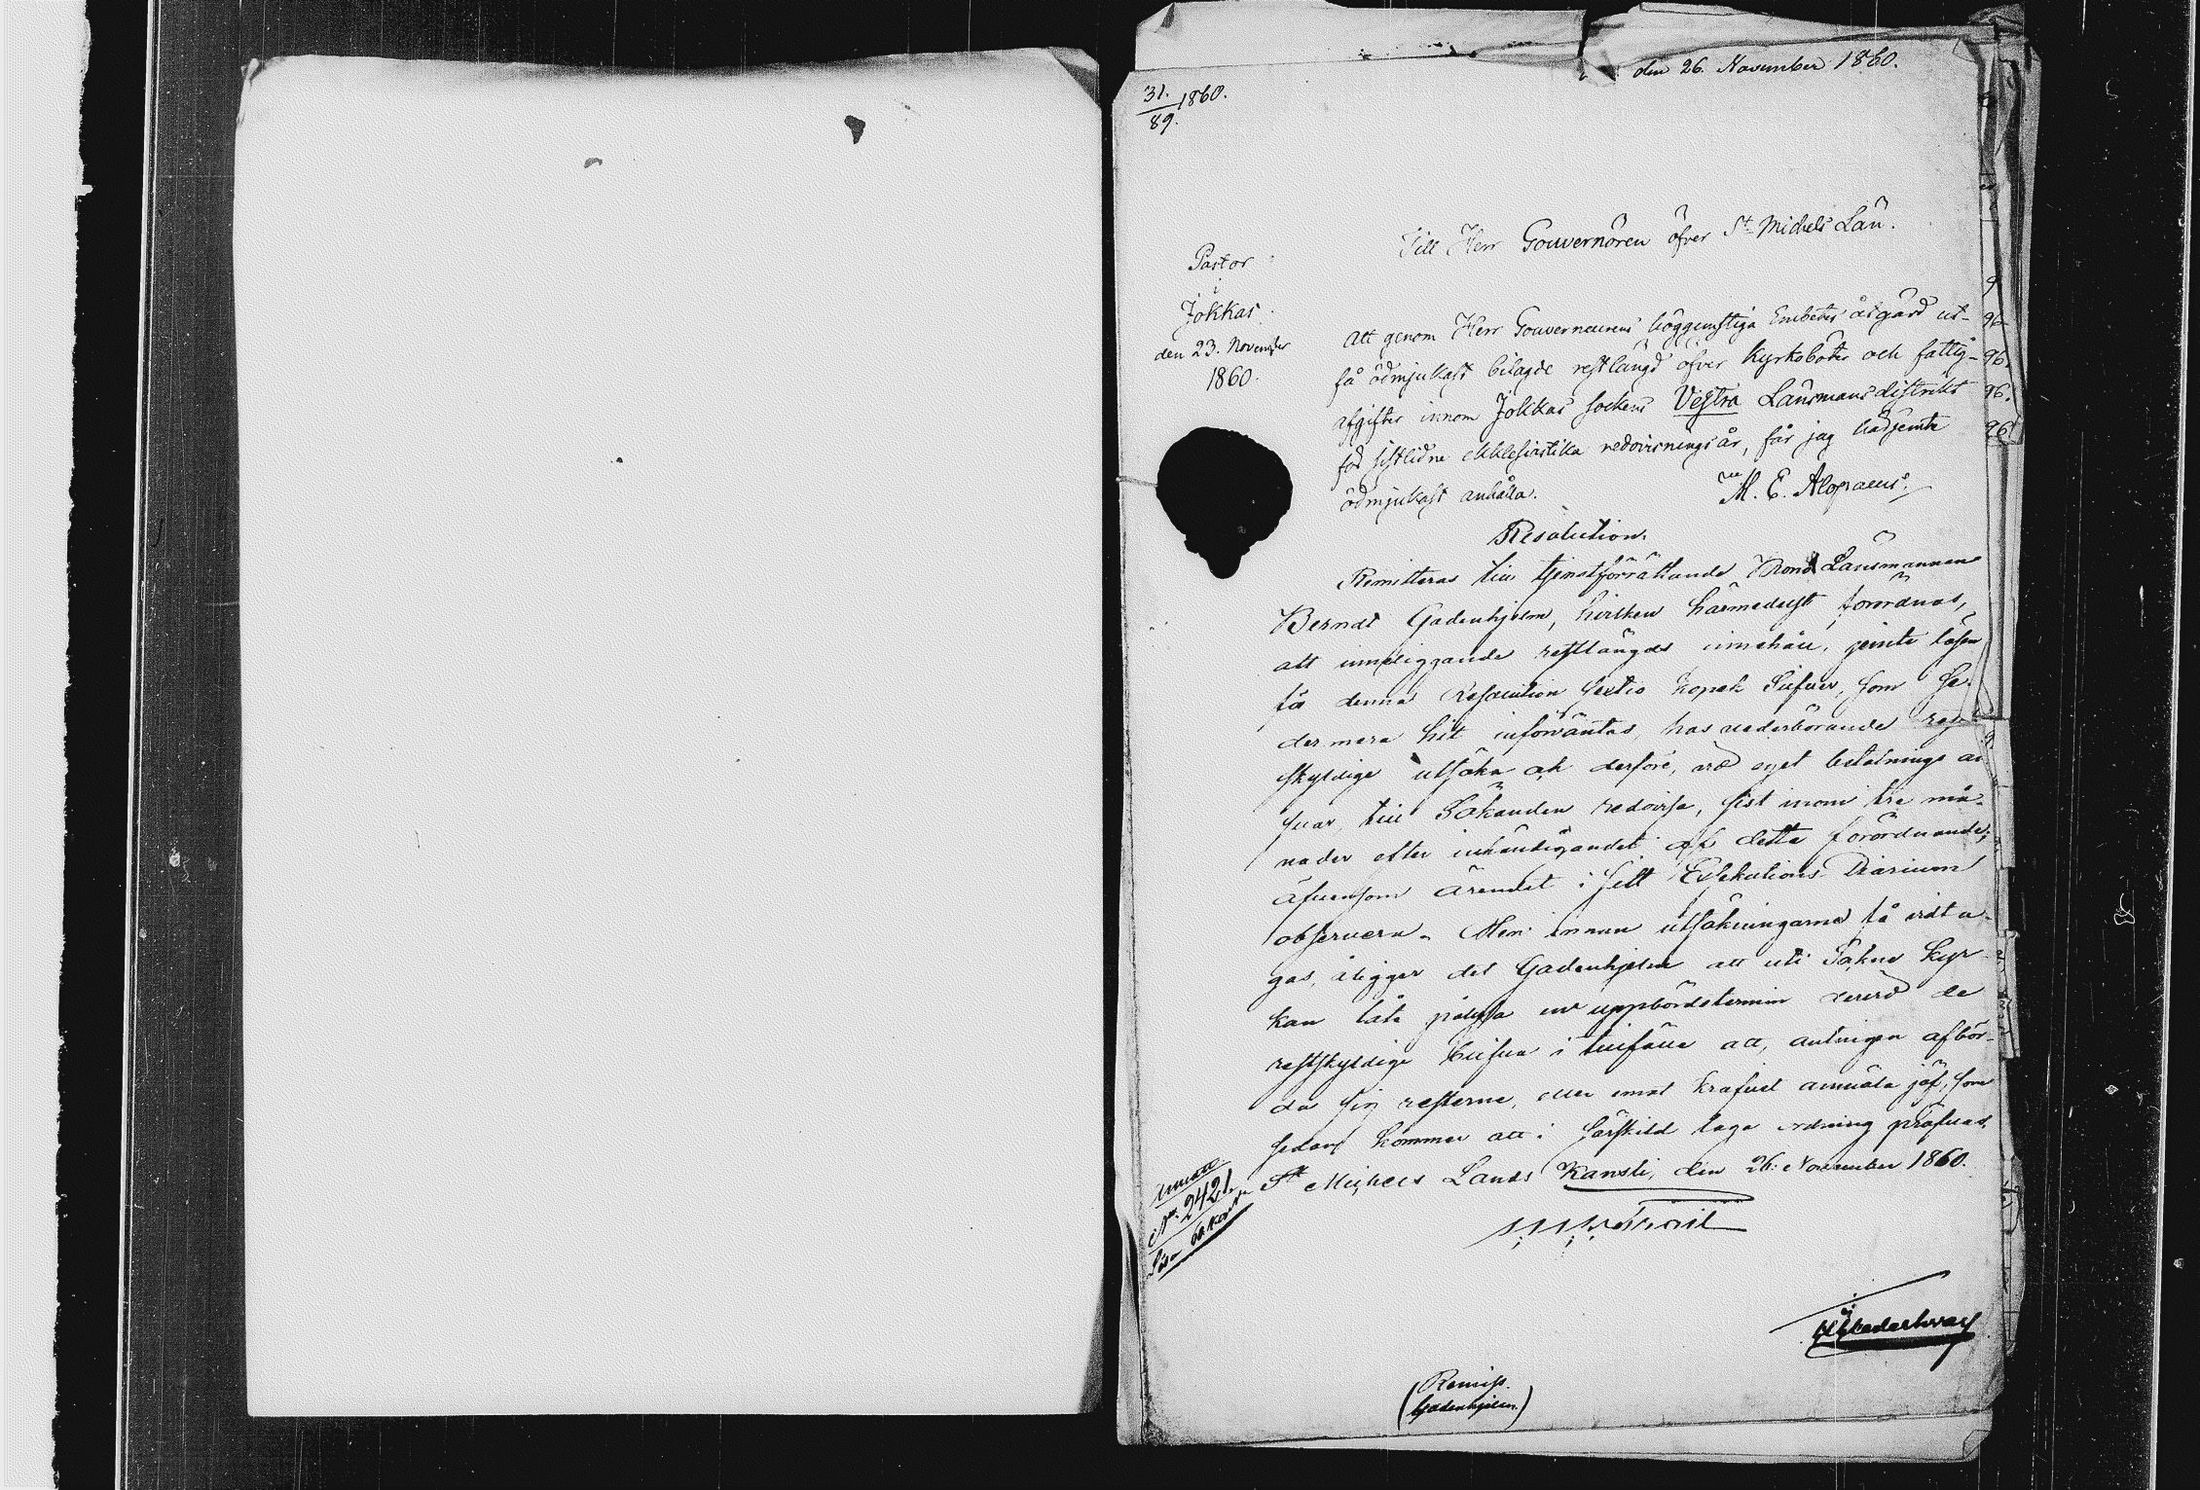 den 26. November 1860.
31./89. 1860.
Till Herr Gouvernören öfver St Michels Län.
Pastor
i
Jokkas
den 23. November
1860.
Att genom Herr Gouverneurens höggunstiga Embetes åtgärd ut-
få ödmjukast bilagde restlängd öfver Kyrkoböter och fattig-
afgifter innom Jokkas sockens Vestra Länsmansdistrikt
för sistlidne ekklesiastika redovisningsår, får jag härjemte
ödmjukast anhålla.
M. E. Alopaeus.
96.
96.
96.
96.
Resolution.
Remitteras till tjenstförrättande Krono Länsmannen
Berndt Gadenhjelm, hvilken härmedelst förordnas,
att inneliggande restlängds innehåll, jemte lösen
för denna Resolution sextio kopek Silfver, som se-
dermera hit införväntas, hos vederbörande rest-
skyldige utsöka och derföre, vid eget betalnings an-
svar, till Sökanden redovisa, sist inom tre må-
nader efter inhändigandet af detta förordnande,
äfvensom ärendet i sitt Exsekutions Diarium
observera. Men innan utsökningarne få vidta-
gas, åligger det Gadenhjelm att uti Sokne Kyr-
kan låta pålysa en uppbördstermin dervid de
restskyldige blifva i tillfälle att, antingen afbör-
da sig resterne, eller emot krafvet anmäla jäf, som
sedan kommer att i särskild laga ordning pröfvas.
St Michels Lands Kansli, den 26. November 1860.
No. 2421.
Remiss.
Gadenhjelm.